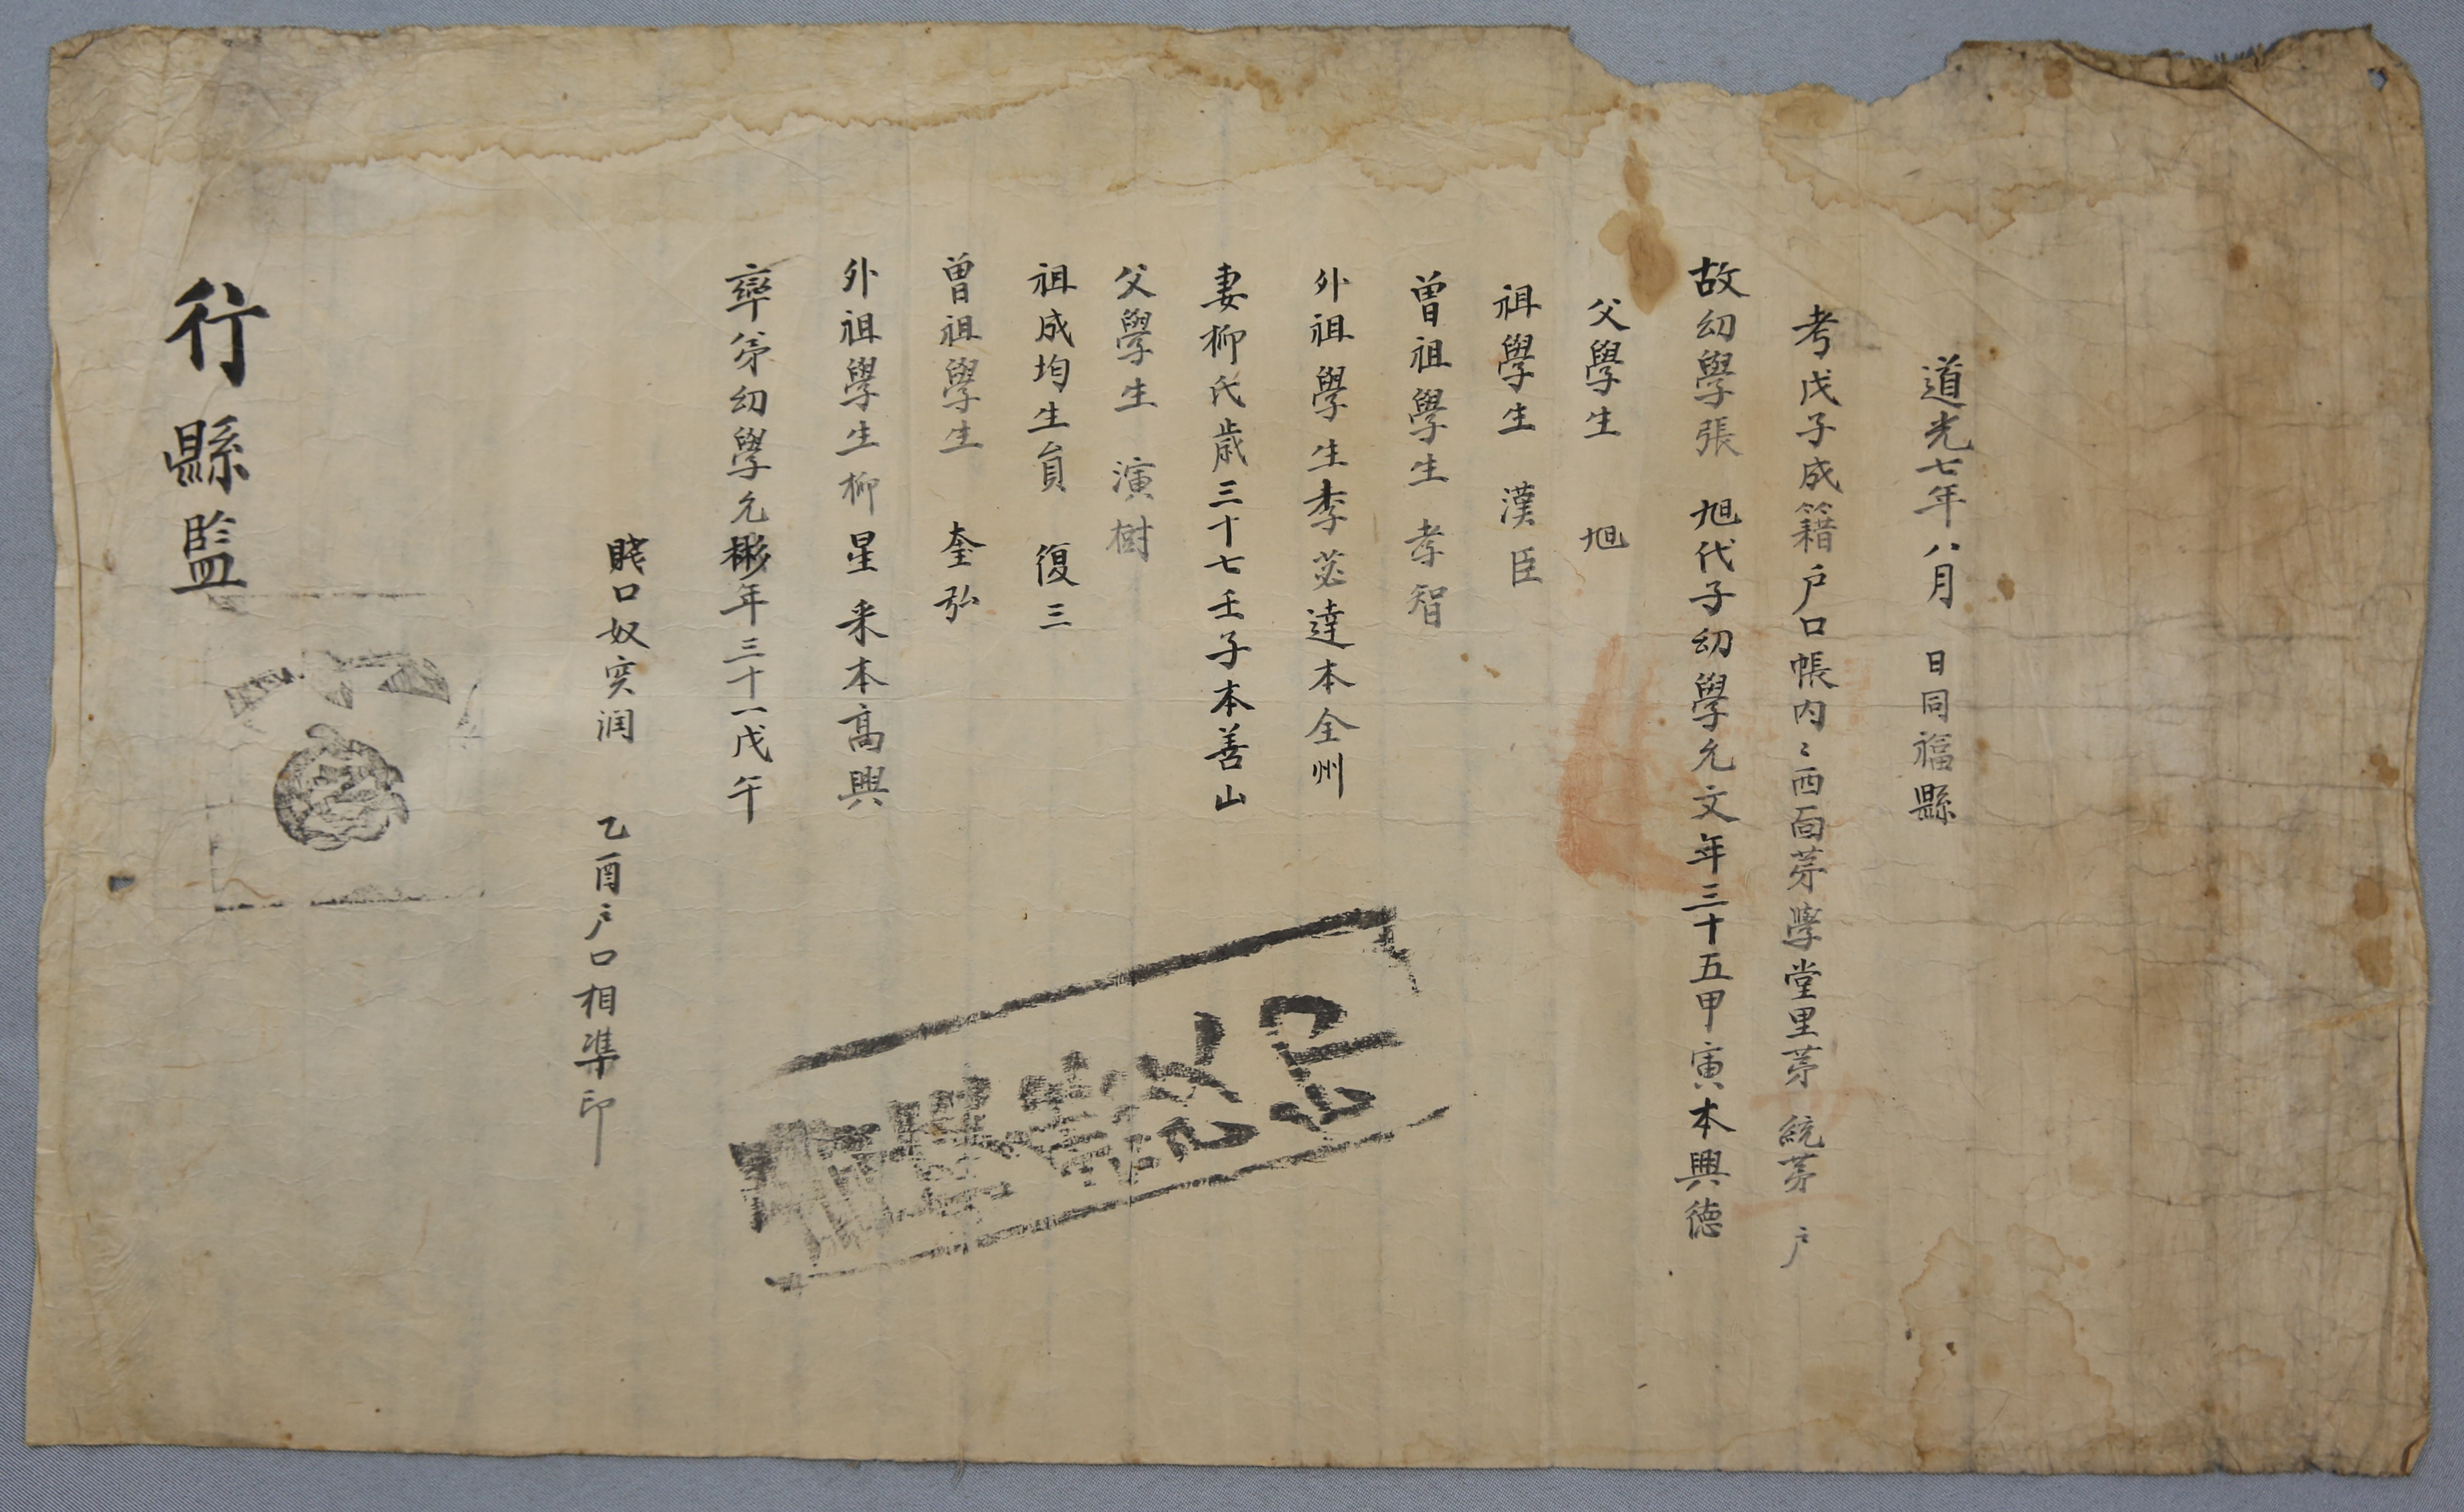 道光七年八月 日同福縣
考戊子成籍戶口帳內〻西面苐學堂里苐 統苐 戶
故幼學張 旭代子幼學允文年三十五甲寅本興德
父學生 旭
祖學生 漢臣
曾祖學生 孝智
外祖學生李苾達本全州
妻柳氏歲三十七壬子本善山
父學生 演樹
祖成均生員 復三
曾祖學生 奎弘
外祖學生柳星来本高興
率弟幼學允彬年三十一戊午
賤口奴突润 乙酉戶口相準印
行縣監